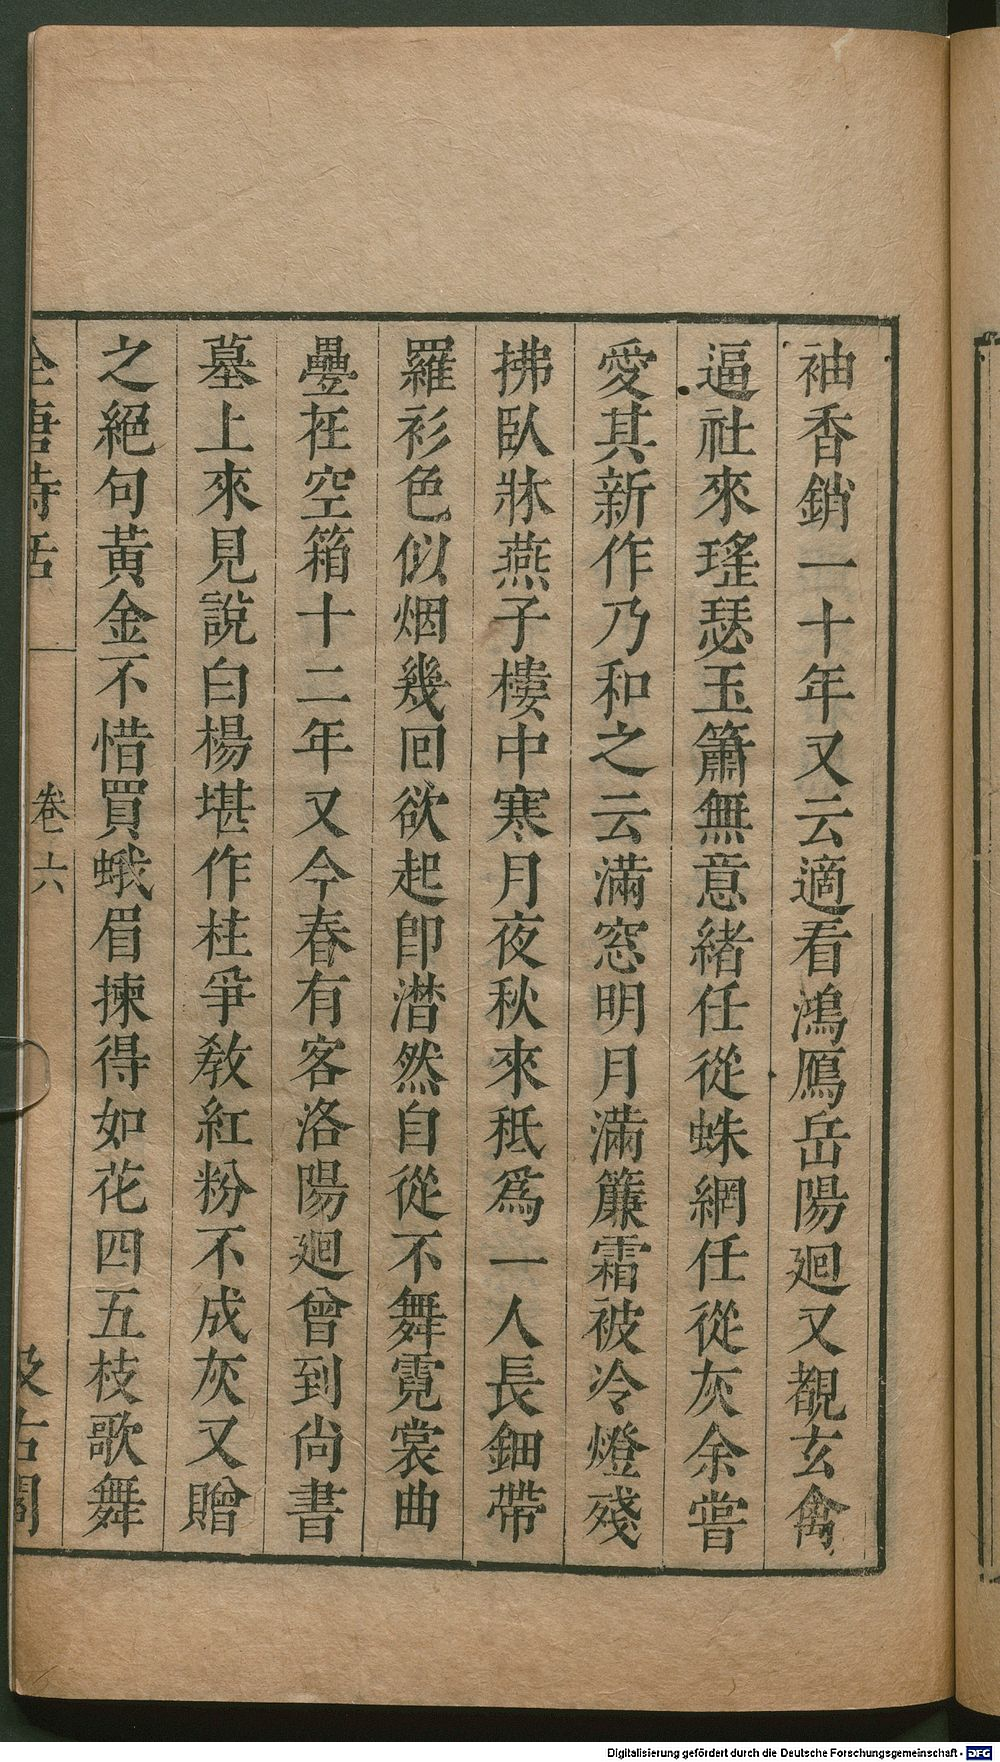 袖香銷一十年又云適看鴻鴈岳陽廻又覩玄禽
逼社來瑤瑟玉簫無意緒任從蛛網任從灰余嘗
愛其新作乃和之云滿窓明月滿簾霜被冷燈殘
拂臥牀燕子樓中寒月夜秋來秪爲一人長鈿帶
羅衫色似烟幾回欲起卽潸然自從不舞霓裳曲
疊在空箱十二年又今春有客洛陽廻曾到尙書
墓上來見說白楊堪作柱爭敎紅粉不成灰又贈
之絕句黃金不惜買蛾眉揀得如花四五枝歌舞
全唐詩話 卷六 汲古閣
Digitalisierung gefördert durch die Deutsche Forschungsgemeinschaft - DFG